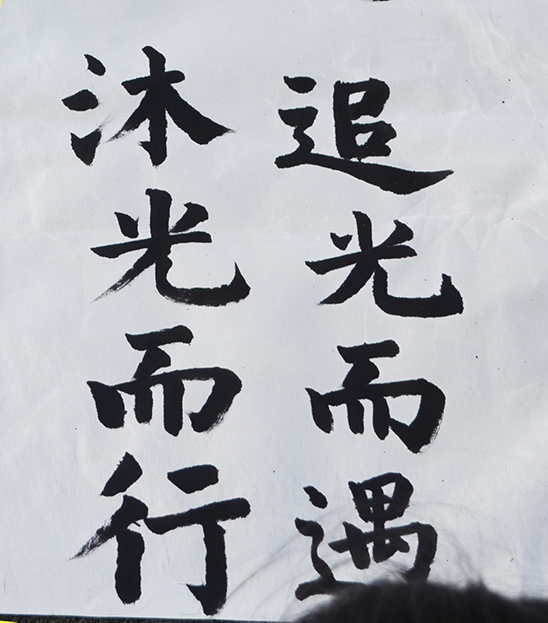 追光而遇
沐光而行